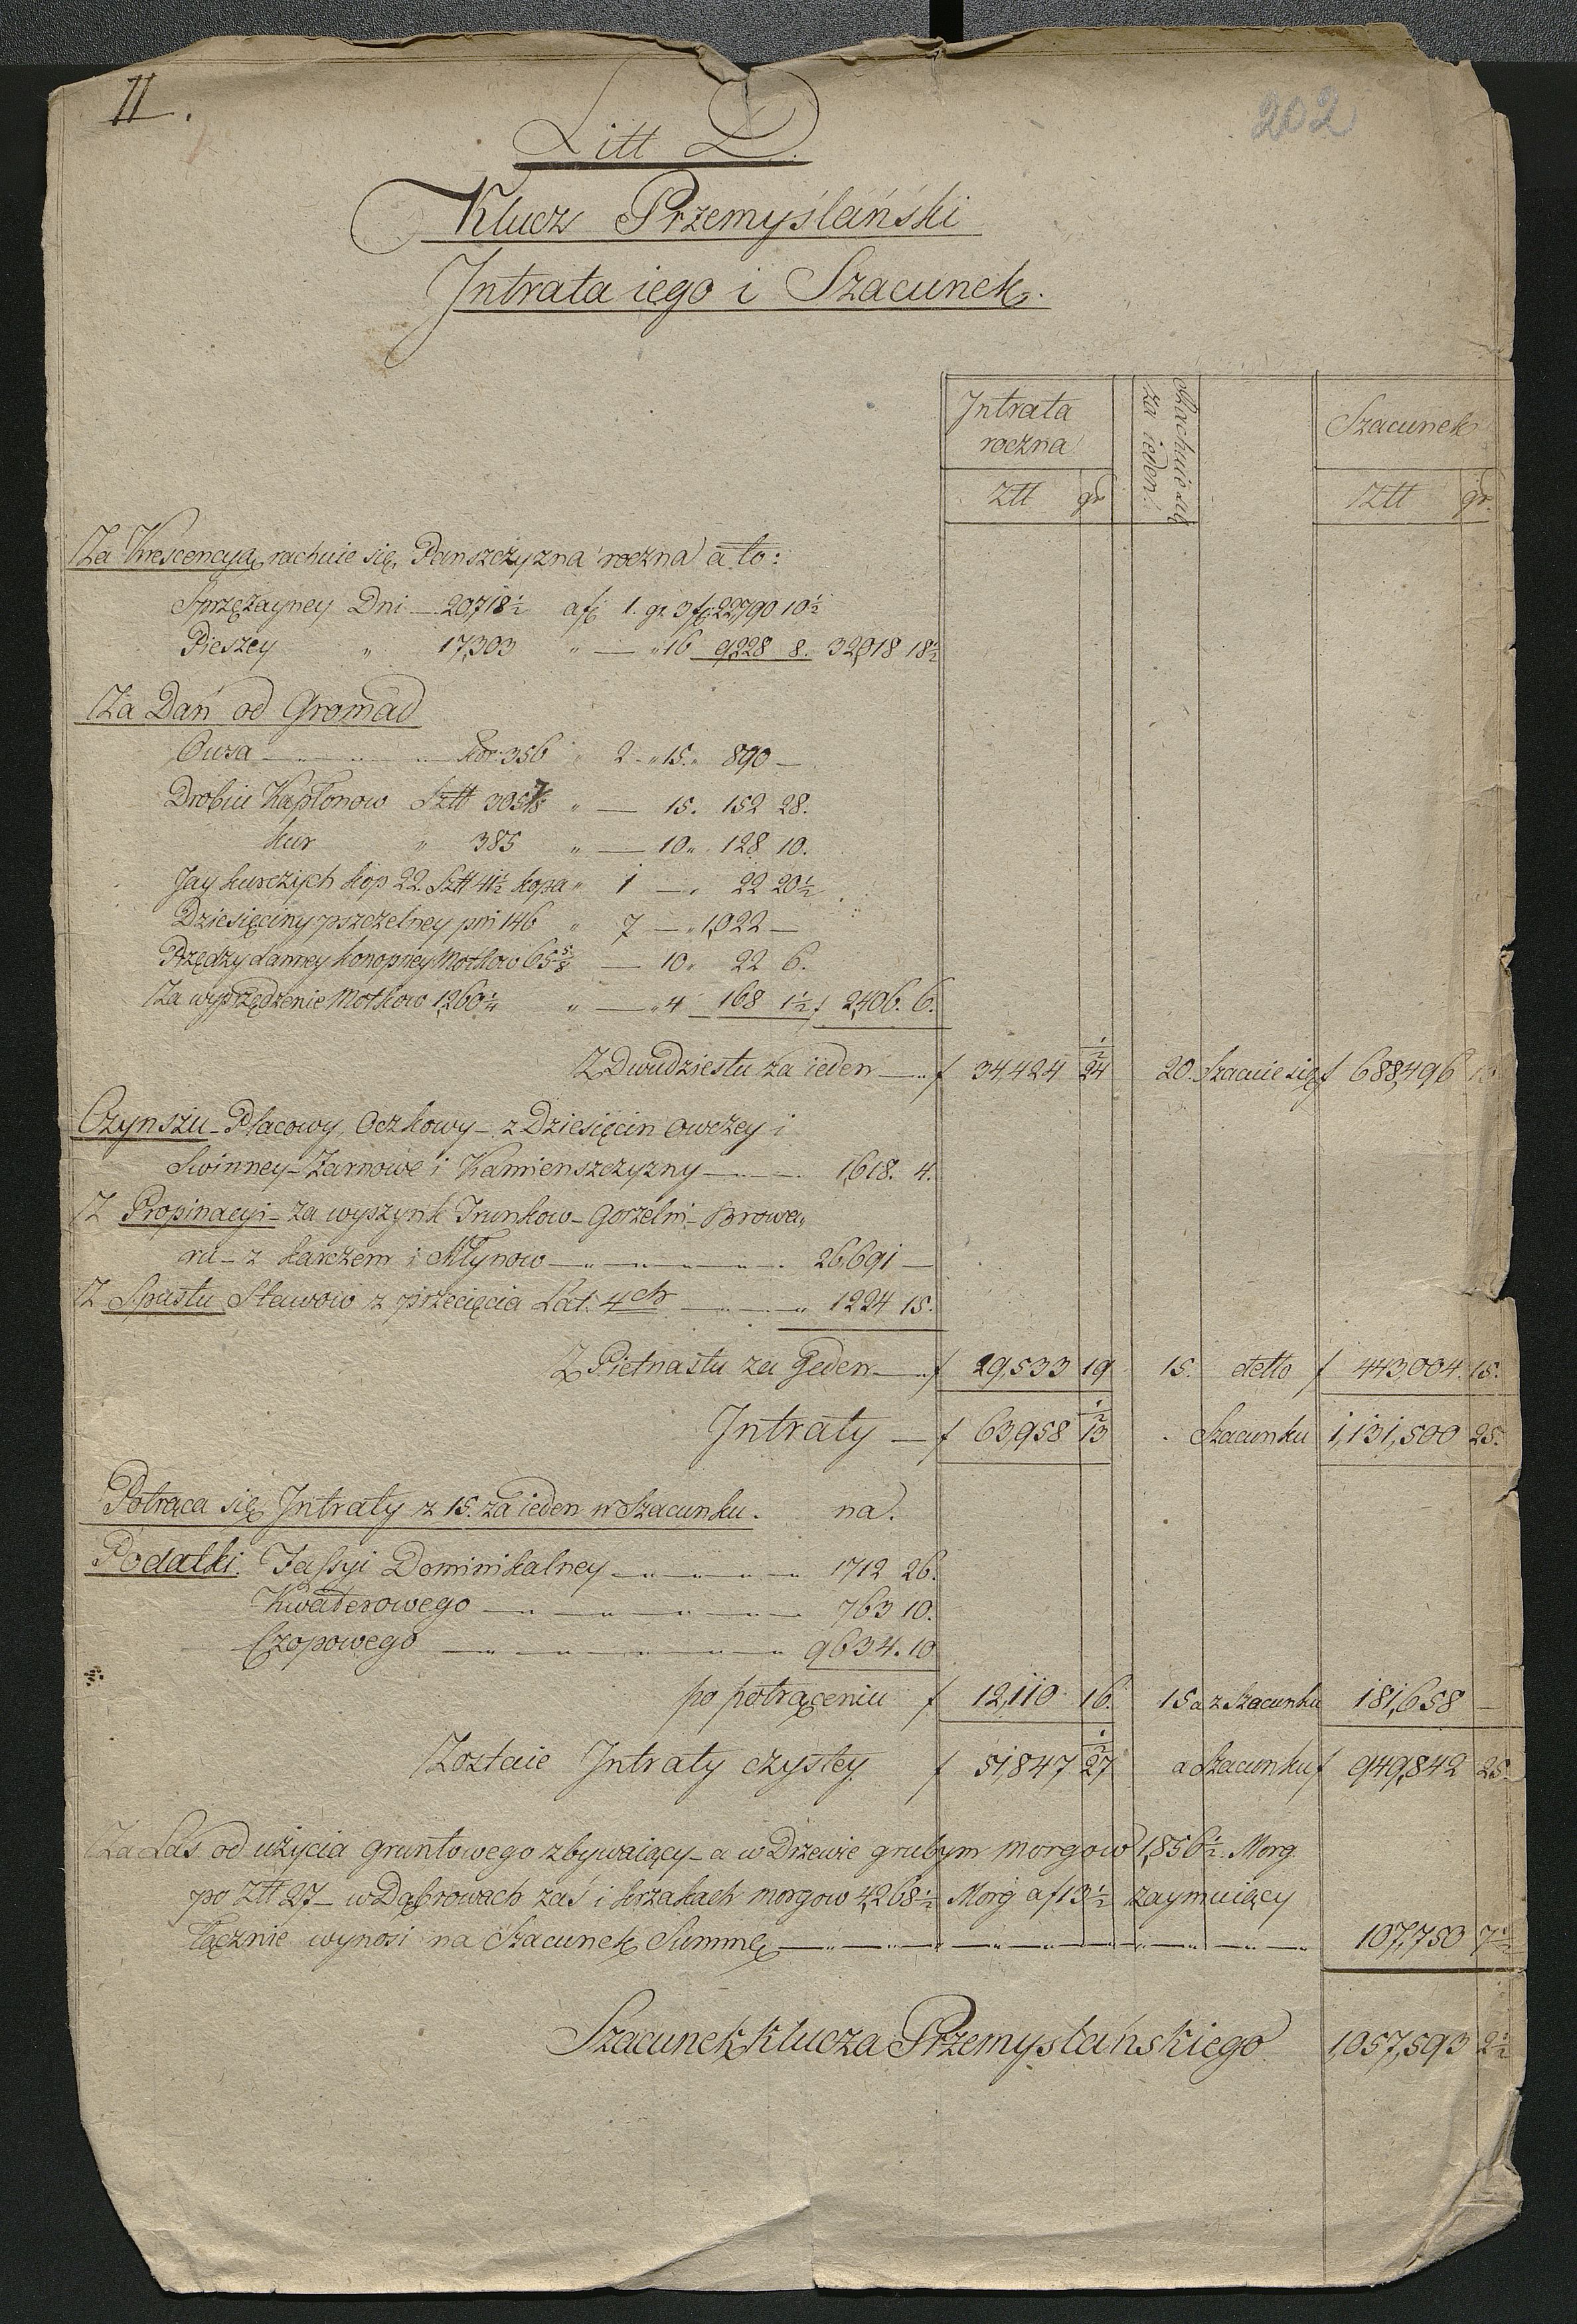 II.
202
Litt D.
Klucz Przemyślański
Intrata iego i Szacunek.
Intrata roczna
Rachuie się za ieden.
Szacunek
Ztt gr
Ztt gr.
Za Krescencyą rachuie się, Panszczyzna roczna a to:
Sprzężayney Dni — 20,718½ a f 1. gr. 3 f 22,790 10½
Pieszey " 17,303 " — " 16 9,228 8. 32,018 18½
Za Dań od Gromad
Owsa — " — Kor: 356 " 2 " 15 " 890 —
Drobiu Kapłonow Sztt 305⅞ " — 15. 152 28.
kur " 385 " — 10 " 128 10.
Jay kurczych kop 22. Sztt 41½ kopa " 1 — " 22 20½
Dziesięciny pszczelney pni 146 " 7 — " 1,022 —
Przędzy daney konopney Motkow 65⅝ — 10 " 22 6.
Za wyprzędzenie Motkow 1,260¼ " — " 4 168 1½ f 2,406. 6.
Z Dwudziestu za ieden — f 34,424 24½ 20. Szacuie się f 688,496 10
Czynszu – Placowy, Oczkowy – z Dziesięcin owczey i
Swinney – Zarnowe i Kamienszczyzny — 1,618. 4.
Z Propinacyi – za wyszynk Trunkow – Gorzelni – Browa„
ru – z karczem i Młynow — 26,691 —
Z Spustu Stawow z przecięcia Lat. 4ch — " 1224 15.
Z Pietnastu za Jeden — f 29,533 19 15. detto f 443,004. 15.
Intraty — f 63,958 13½ . Szacunku 1,131,500 25.
Potrąca się Intraty z 15. za ieden w Szacunku. na.
Podatki. Fassyi Dominikalney — 1712 26.
Kwaterowego — 763 10.
Czopowego — 9634. 10
po potrąceniu f 12,110 16. 15 a z Szacunku 181,658 —
Zostaie Intraty czystey f 51,847 27½ a Szacunku f 949,842 25.
Za Las od użycia gruntowego zbywaiący – a w Drzewie grubym morgow 1,856½. Morg
po Ztt 27 – w Dąbrowach zaś i krzakach morgow 4,268½ Morg a f 13½ zaymuiący
łącznie wynosi na Szacunek Summę — 107,750 7½
Szacunek klucza Przemyslańskiego 1,057,593 2½